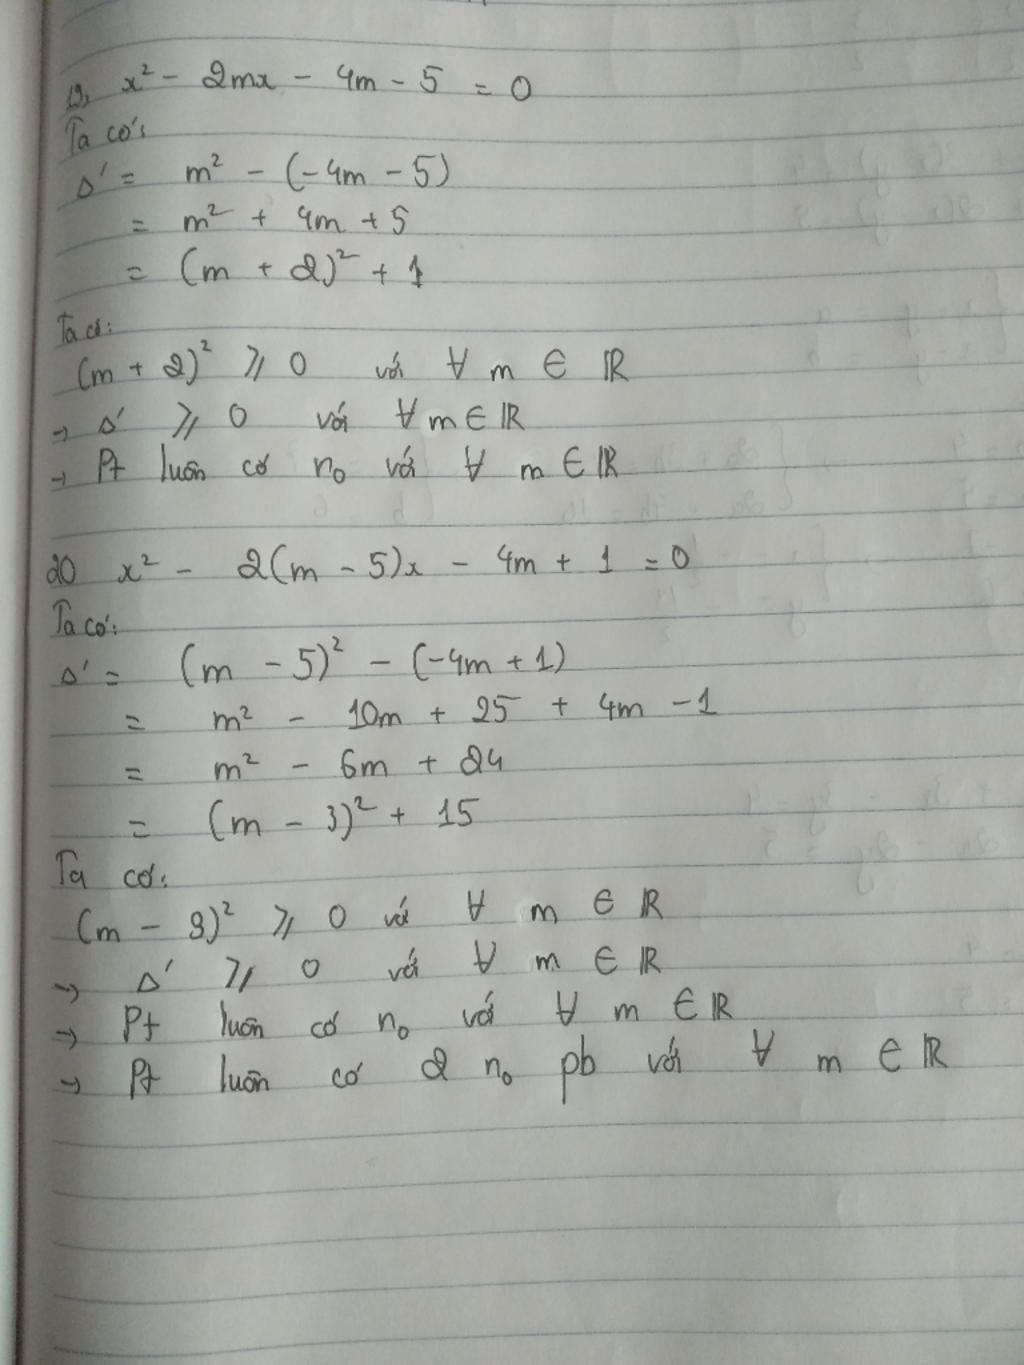 19, x² - 2mx - 4m - 5 = 0
Ta có:
Δ' = m² - (-4m - 5)
= m² + 4m + 5
= (m + 2)² + 1
Ta có:
(m + 2)² ⩾ 0 với ∀ m ∈ ℝ
→ Δ' ⩾ 0 với ∀ m ∈ ℝ
→ Pt luôn có n₀ với ∀ m ∈ ℝ
20 x² - 2(m - 5)x - 4m + 1 = 0
Ta có:
Δ' = (m - 5)² - (-4m + 1)
= m² - 10m + 25 + 4m - 1
= m² - 6m + 24
= (m - 3)² + 15
Ta có:
(m - 3)² ⩾ 0 với ∀ m ∈ ℝ
→ Δ' ⩾ 0 với ∀ m ∈ ℝ
→ Pt luôn có n₀ với ∀ m ∈ ℝ
→ Pt luôn có 2 n₀ pb với ∀ m ∈ ℝ